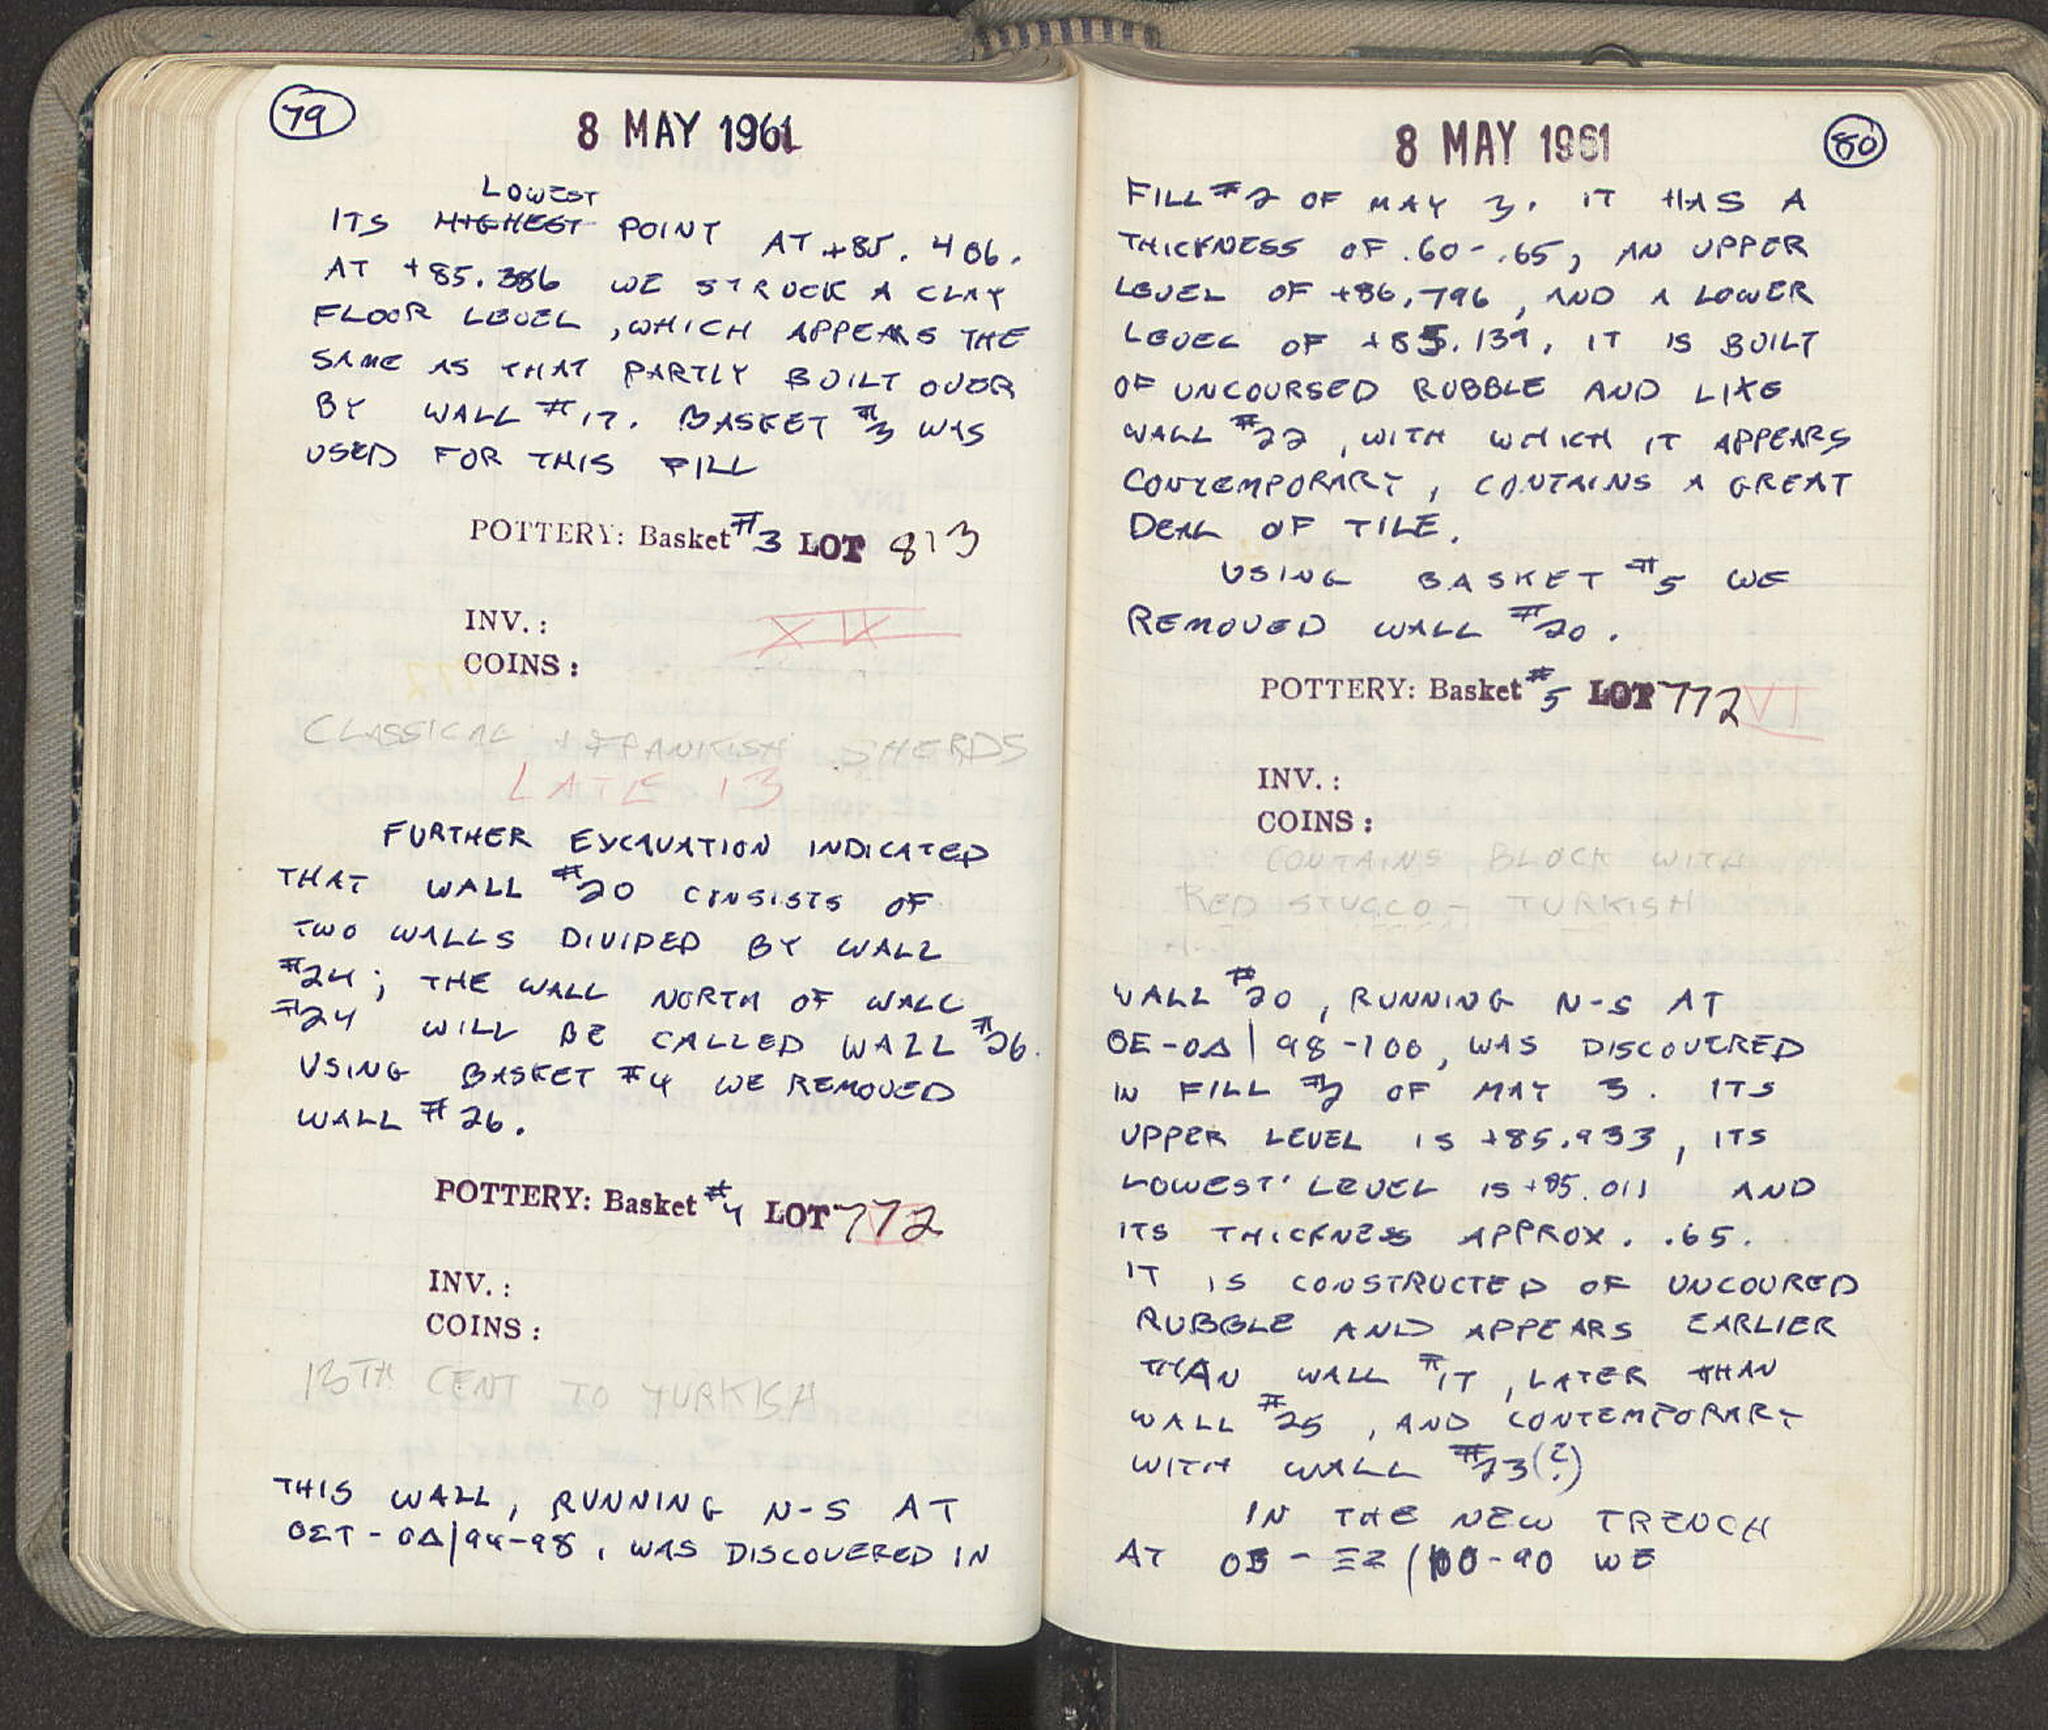 79
8 MAY 1961
LOWEST
ITS HIGHEST POINT AT +85.406.
AT +85.386 WE STRUCK A CLAY
FLOOR LEVEL, WHICH APPEARS THE
SAME AS THAT PARTLY BUILT OVER
BY WALL #17. BASKET #3 WAS
USED FOR THIS FILL
POTTERY: Basket #3 LOT 813
INV.:
COINS:
CLASSICAL + FRANKISH SHERDS
LATE 13
FURTHER EXCAVATION INDICATED
THAT WALL #20 CONSISTS OF
TWO WALLS DIVIDED BY WALL
#24; THE WALL NORTH OF WALL
#24 WILL BE CALLED WALL #26.
USING BASKET #4 WE REMOVED
WALL #26.
POTTERY: Basket #4 LOT 772
INV.:
COINS:
13TH CENT TO TURKISH
THIS WALL, RUNNING N-S AT
-OΔ|94-98, WAS DISCOVERED IN
80
8 MAY 1961
FILL #2 OF MAY 3. IT HAS A
THICKNESS OF .60-.65, AN UPPER
LEVEL OF +86.796, AND A LOWER
LEVEL OF +85.139. IT IS BUILT
OF UNCOURSED RUBBLE AND LIKE
WALL #22, WITH WHICH IT APPEARS
CONTEMPORARY, CONTAINS A GREAT
DEAL OF TILE.
USING BASKET #5 WE
REMOVED WALL #20.
POTTERY: Basket #5 LOT 772 VI
INV.:
COINS:
CONTAINS BLOCK WITH
RED STUCCO - TURKISH
WALL #20, RUNNING N-S AT
OE-OΔ|98-100, WAS DISCOVERED
IN FILL #2 OF MAY 3. ITS
UPPER LEVEL IS +85.933, ITS
LOWEST LEVEL IS +85.011 AND
ITS THICKNESS APPROX. .65.
IT IS CONSTRUCTED OF UNCOURED
RUBBLE AND APPEARS EARLIER
THAN WALL #17, LATER THAN
WALL #25, AND CONTEMPORARY
WITH WALL #23(?)
IN THE NEW TRENCH
AT -ΞZ/100-90 WE